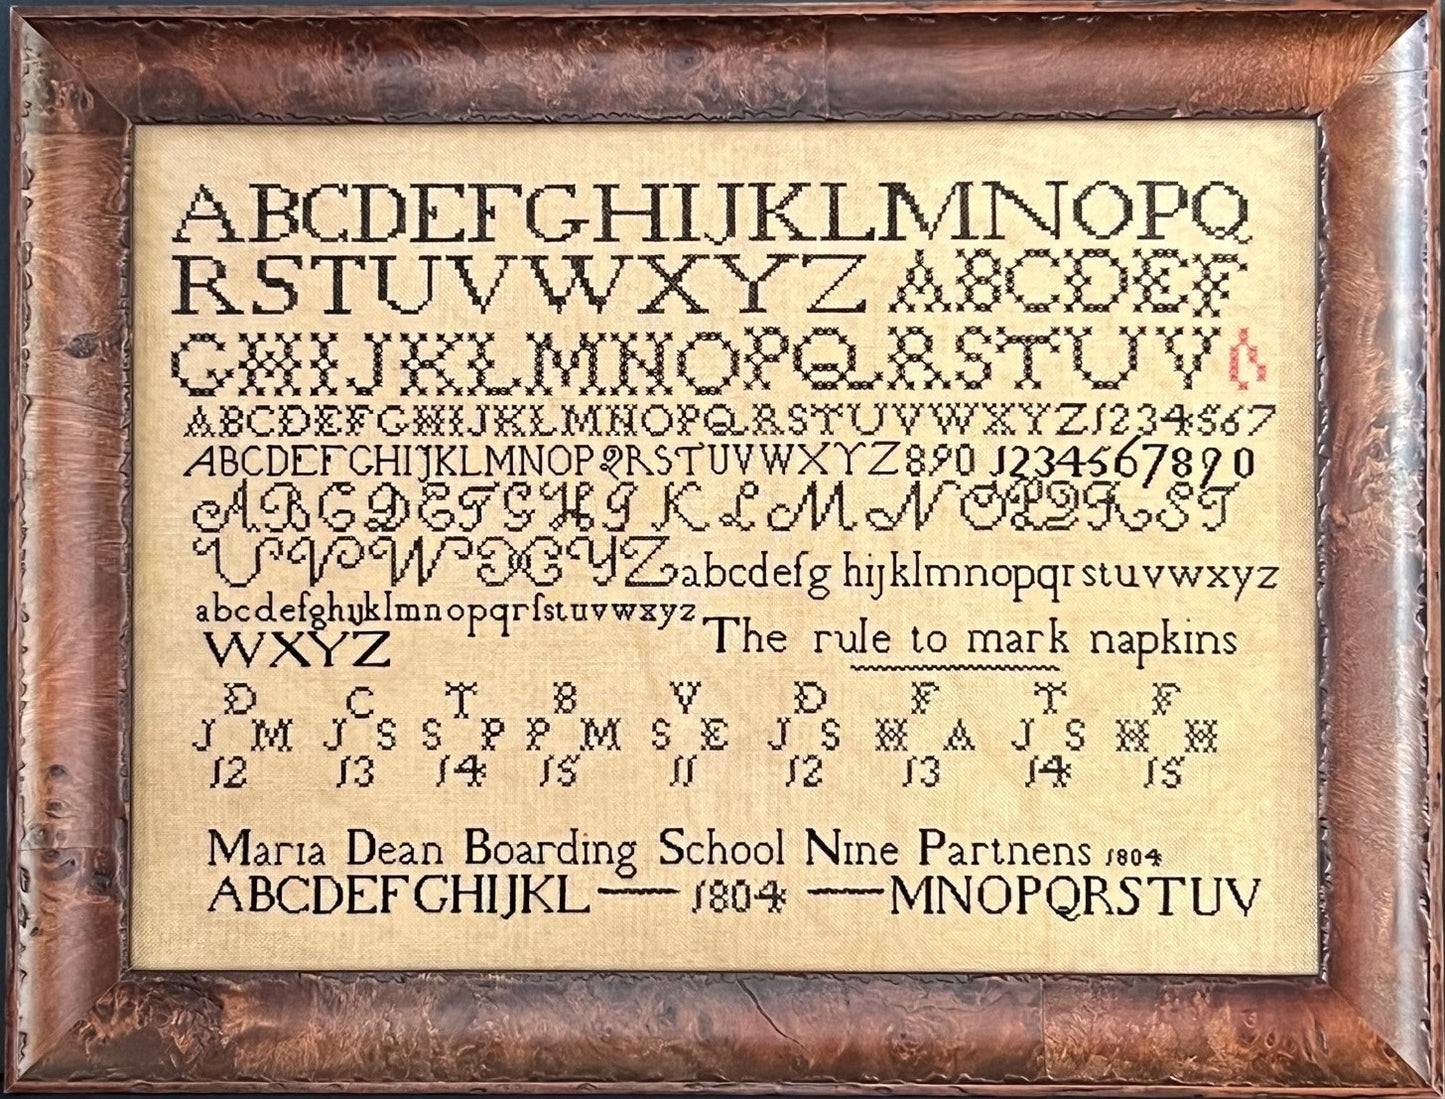 ABCDEFGHIJKLMNOPQ
RSTUVWXYZ ABCDEF
GHIJKLMNOPQRSTUV
ABCDEFGHIJKLMNOPQRSTUVWXYZ1234567
ABCDEFGHIJKLMNOPQRSTUVWXYZ890 1234567890
ABCDEFGHIJKLMNOPQRST
UVWXYZabcdefg hijklmnopqrstuvwxyz
abcdefghijklmnopqrſstuvwxyz
WXYZ The rule to mark napkins
D C T B V D F T F
J M J S S P P M S E J S H A J S H H
12 13 14 15 11 12 13 14 15
Maria Dean Boarding School Nine Partnens 1804
ABCDEFGHIJKL — 1804 — MNOPQRSTUV